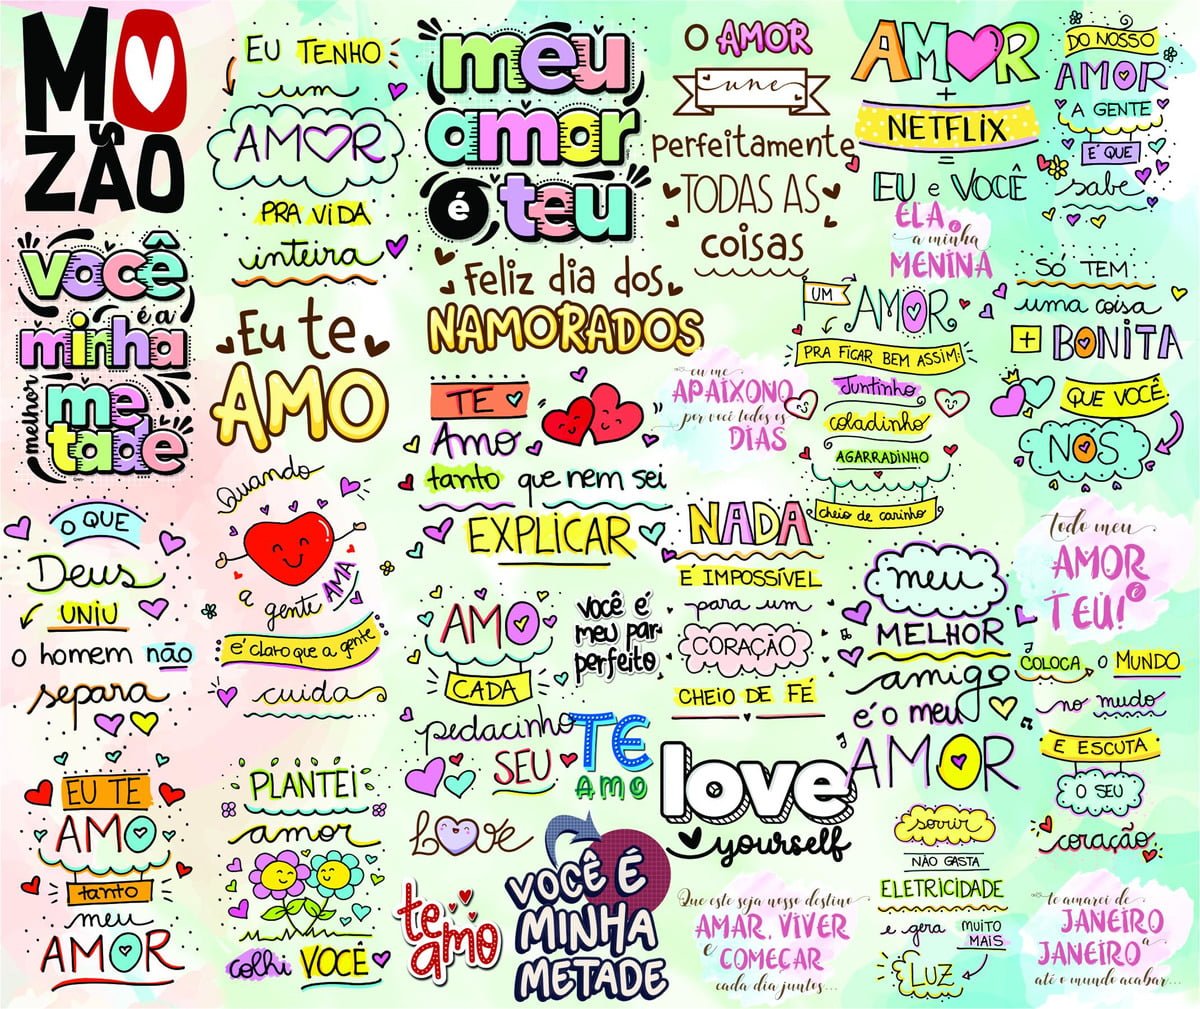 MO
ZÃO
EU TENHO
um
AMOR
PRA VIDA
inteira
meu
amor
é teu
O AMOR
une
perfeitamente
TODAS AS
coisas
AMOR
+
NETFLIX
=
EU e VOCÊ
DO NOSSO
AMOR
A GENTE
É QUE
sabe
ELA é
a minha
MENINA
você
é a
minha
melhor
me
tade
Eu te
AMO
Feliz dia dos
NAMORADOS
UM AMOR
PRA FICAR BEM ASSIM:
Juntinho
coladinho
AGARRADINHO
cheio de carinho
SÓ TEM
uma coisa
+ BONITA
QUE VOCÊ:
NÓS
TE
Amo
tanto que nem sei
EXPLICAR
eu me
APAIXONO
por você todos os
DIAS
O QUE
Deus
UNIU
o homem não
separa
Quando
a gente AMA
é claro que a gente
cuida
AMO
CADA
pedacinho
SEU
você é
meu par
perfeito
NADA
É IMPOSSÍVEL
para um
CORAÇÃO
CHEIO DE FÉ
meu
MELHOR
amigo
é o meu
AMOR
todo meu
AMOR é
TEU!
COLOCA O MUNDO
no mudo
E ESCUTA
O SEU
coração
EU TE
AMO
tanto
meu
AMOR
PLANTEI
amor
colhi VOCÊ
LOVE
te
amo
TE
AMO
VOCÊ É
MINHA
METADE
love
yourself
Que este seja nosso destino
AMAR, VIVER
e COMEÇAR
cada dia juntos...
sorrir
NÃO GASTA
ELETRICIDADE
e gera MUITO
MAIS
LUZ
te amarei de
JANEIRO
a
JANEIRO
até o mundo acabar...